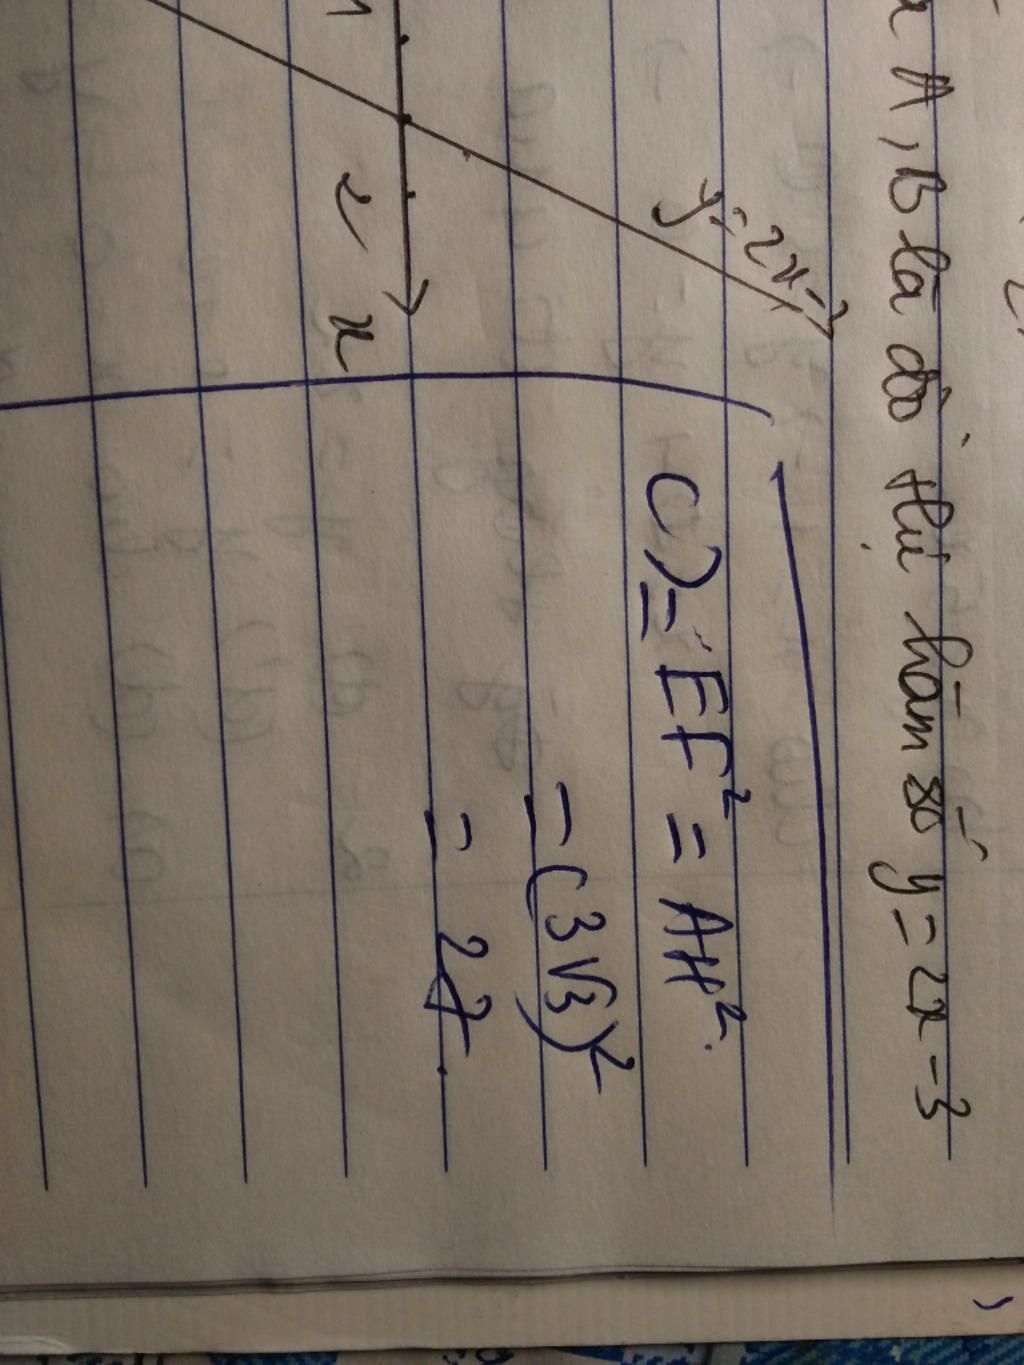 A, B là đồ thị hàm số y = 2x - 3
y = 2x - 3
2
x
c) = EF² = AH².
= (3√3)²
= 27.